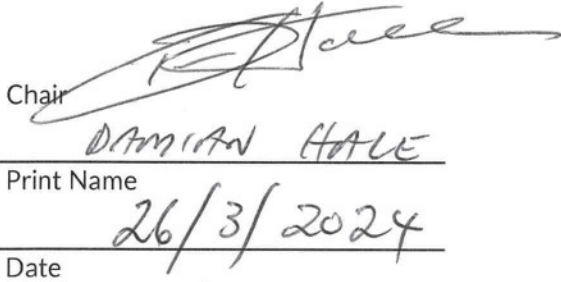 Chair
DAMIAN HALE
Print Name
26/3/2024
Date